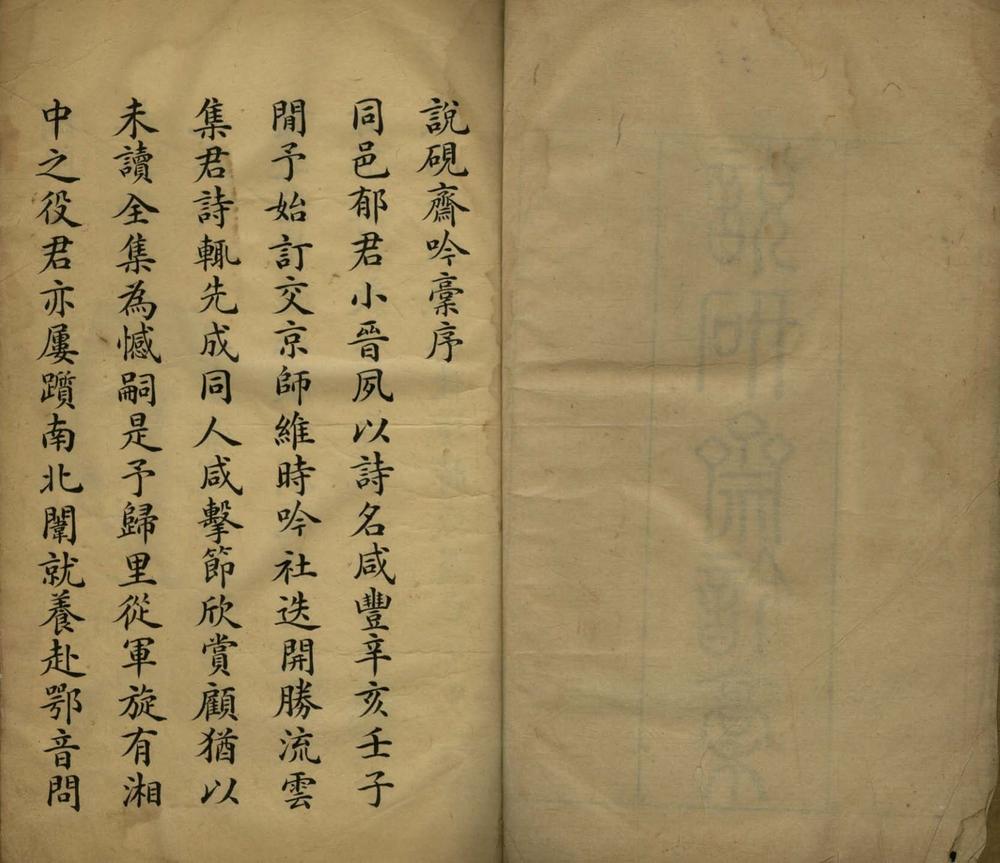 說硯齋吟稾序
同邑郁君小晉夙以詩名咸豐辛亥壬子
閒予始訂交京師維時吟社迭開勝流雲
集君詩輒先成同人咸擊節欣賞顧猶以
未讀全集為憾嗣是予歸里從軍旋有湘
中之役君亦屢躓南北闈就養赴鄂音問